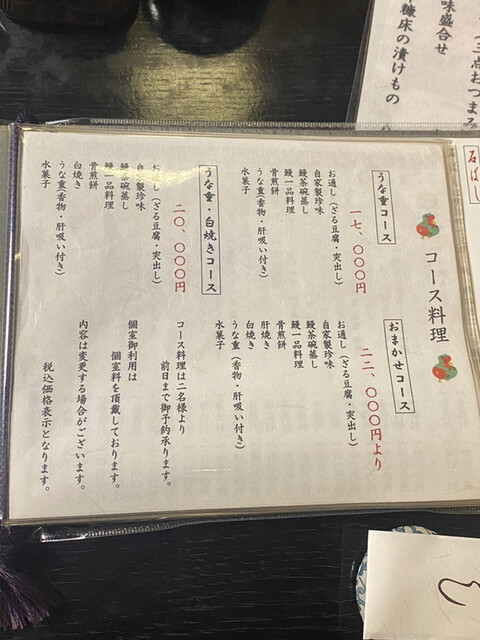 味盛合せ
(三点おつまみ
糠床の漬けもの
石ばし
コース料理
うな重コース
一七、〇〇〇円
お通し(ざる豆腐・突出し)
自家製珍味
鰻茶碗蒸し
鰻一品料理
骨煎餅
うな重(香物・肝吸い付き)
水菓子
うな重・白焼きコース
二〇、〇〇〇円
お通し(ざる豆腐・突出し)
自家製珍味
鰻茶碗蒸し
鰻一品料理
骨煎餅
白焼き
うな重(香物・肝吸い付き)
水菓子
おまかせコース
二二、〇〇〇円より
お通し(ざる豆腐・突出し)
自家製珍味
鰻茶碗蒸し
鰻一品料理
骨煎餅
肝焼き
白焼き
うな重(香物・肝吸い付き)
水菓子
コース料理は二名様より
前日まで御予約承ります。
個室御利用は
個室料を頂戴しております。
内容は変更する場合がございます。
税込価格表示となります。